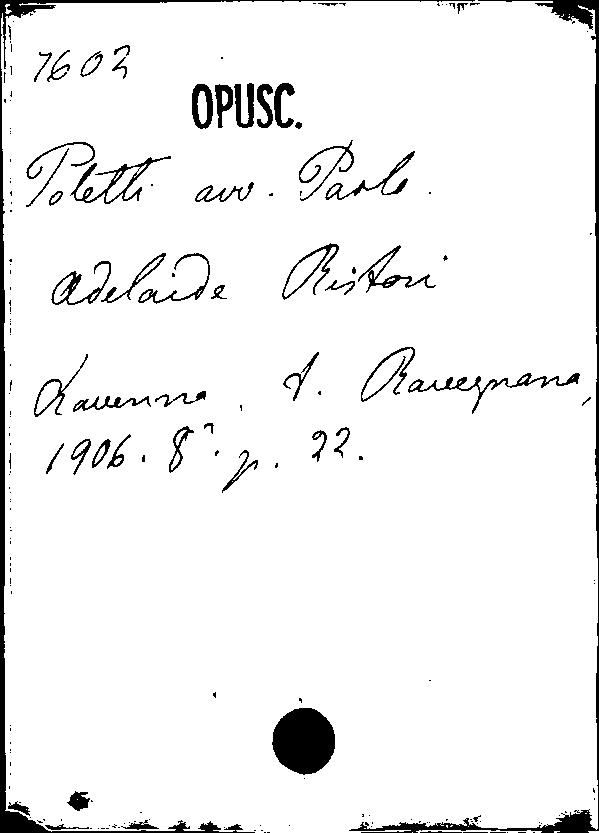 7602
OPUSC.
Poletti avv. Paolo.
Adelaide Ristori
Ravenna, t. Ravegnana,
1906. 8°. p. 22.